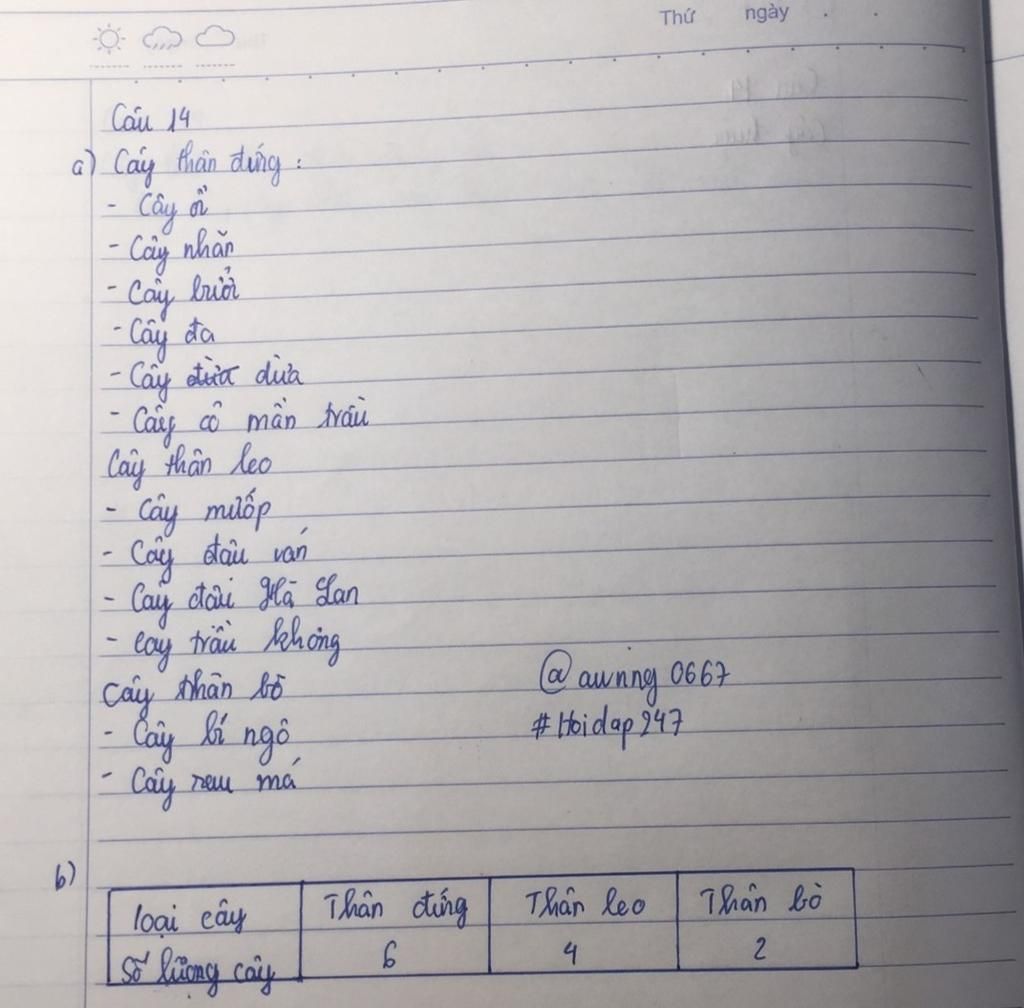 Thứ ngày . .
Câu 14
a) Cây thân đứng :
- Cây ổi
- Cây nhãn
- Cây bưởi
- Cây đa
- Cây đừa dừa
- Cây cỏ mần trầu
Cây thân leo
- Cây mướp
- Cây đậu ván
- Cây đậu Hà Lan
- Cây trầu không
Cây thân bò
@awnng0667
- Cây bí ngô
#Hoidap247
- Cây rau má
b)
loại cây Thân đứng Thân leo Thân bò
số lượng cây 6 4 2